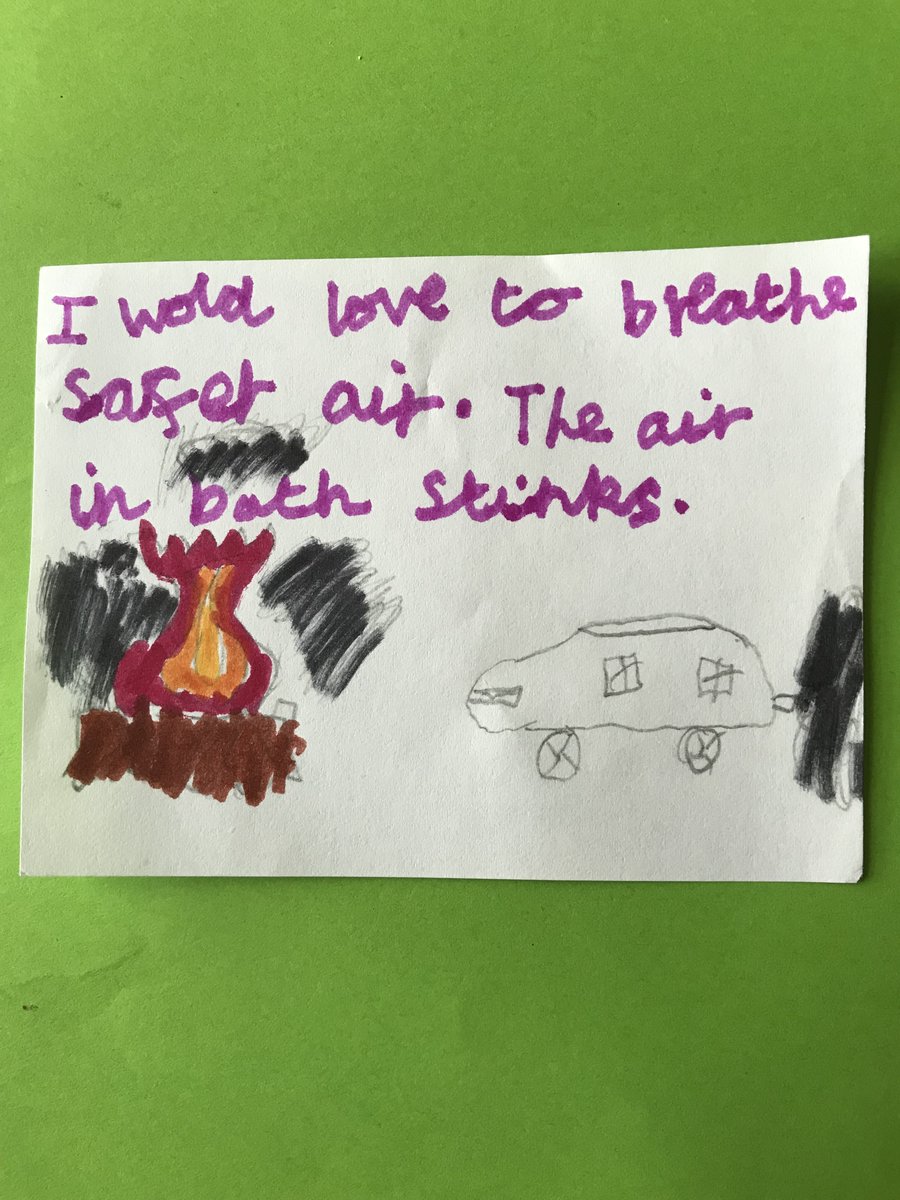 I wold love to breathe
safer air. The air
in bath stinks.